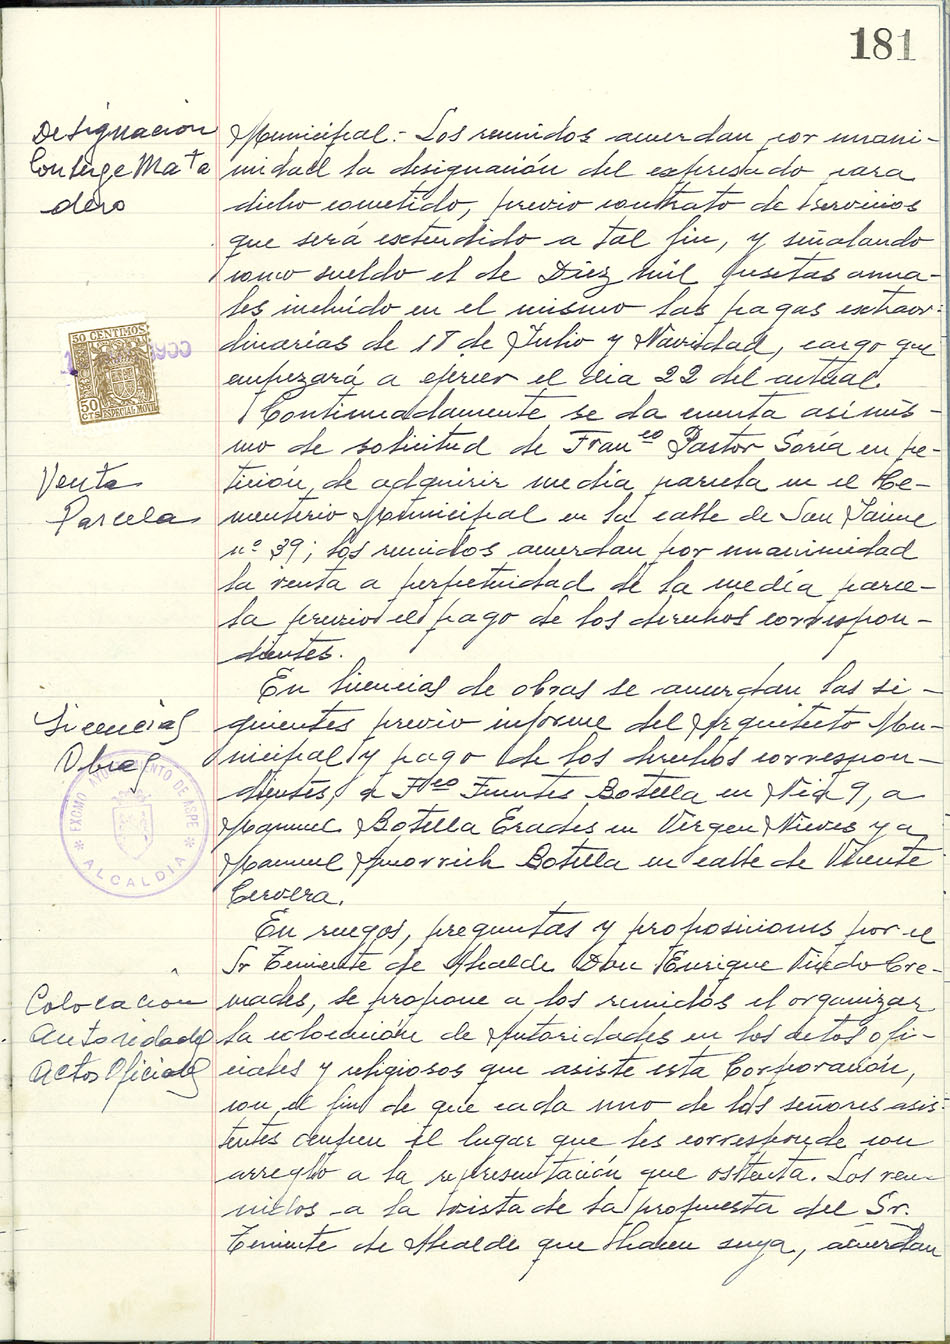 181
Designación
Conserge Mata
dero
Municipal.- Los reunidos acuerdan por unani-
midad la designación del expresado para
dicho cometido, previo contrato de servicios
que será extendido a tal fin, y señalando
como sueldo el de Diez mil pesetas anua-
les incluído en el mismo las pagas extraor-
dinarias de 18 de Julio y Navidad, cargo que
empezará a ejercer el dia 22 del actual.
50 CENTIMOS
50
CTS
ESPECIAL MOVIL
Continuadamente se da cuenta asimis-
mo de solicitud de Franco Pastor Soría en pe-
Venta
Parcela
tición de adquirir media parcela en el Ce-
menterio Municipal en la calle de San Jaime
nº 39; los reunidos acuerdan por unanimidad
la venta a perpetuidad de la media parce-
la previo el pago de los derechos correspon-
dientes.
En licencias de obras se acuerdan las si-
Licencias
Obras
guientes previo informe del Arquitecto Mu-
nicipal y pago de los derechos correspon-
dientes, a Fco Fuentes Botella en Nia 9, a
Manuel Botella Erades en Virgen Nieves y a
Manuel Botella en calle de Vicente
Cervera.
EXCMO AYUNTAMIENTO DE ASPE
* ALCALDIA *
En ruegos, preguntas y proposiciones por el
Sr Teniente de Alcalde Don Enrique Cre-
Colocación
Autoridades
Actos Oficiales
mades, se propone a los reunidos el organizar
la colocación de Autoridades en los actos ofi-
ciales y religiosos que asiste esta Corporación,
con el fin de que cada uno de los señores asis-
tentes ocupen el lugar que les corresponde con
arreglo a la representación que ostenta. Los reu-
nidos a la vista de la propuesta del Sr.
Teniente de Alcalde que hacen suya, acuerdan